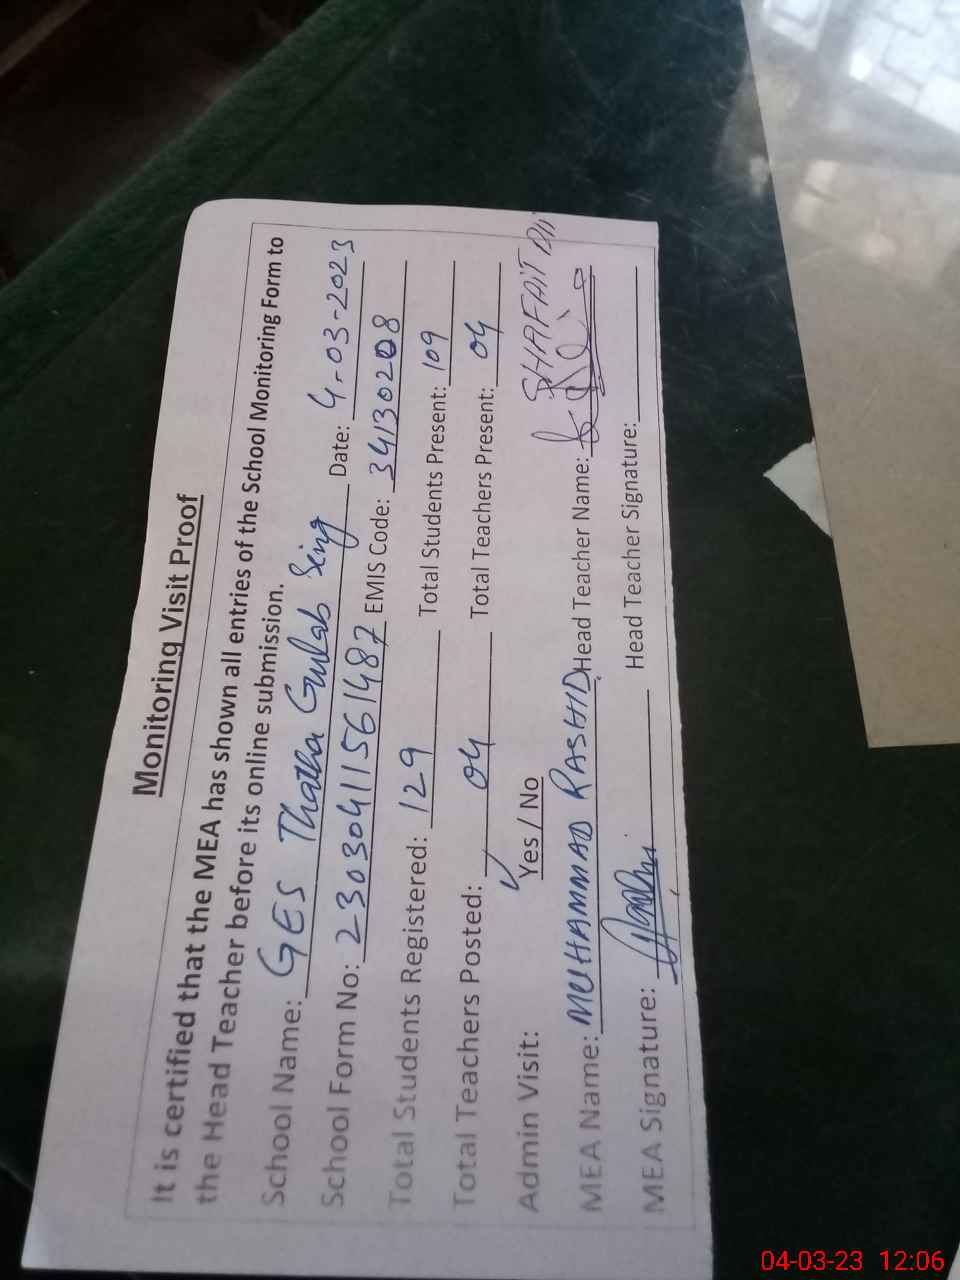 Monitoring Visit Proof
It is certified that the MEA has shown all entries of the School Monitoring Form to
the Head Teacher before its online submission.
School Name: GES Thatha Gulab Sing Date: 4-03-2023
School Form No: 23030411561487 EMIS Code: 34130208
Total Students Registered: 129 Total Students Present: 109
Total Teachers Posted: 04 Total Teachers Present: 04
Admin Visit: Yes / No
MEA Name: MUHAMMAD RASHID Head Teacher Name: SHAFAIT
MEA Signature: Head Teacher Signature:
04-03-23 12:06